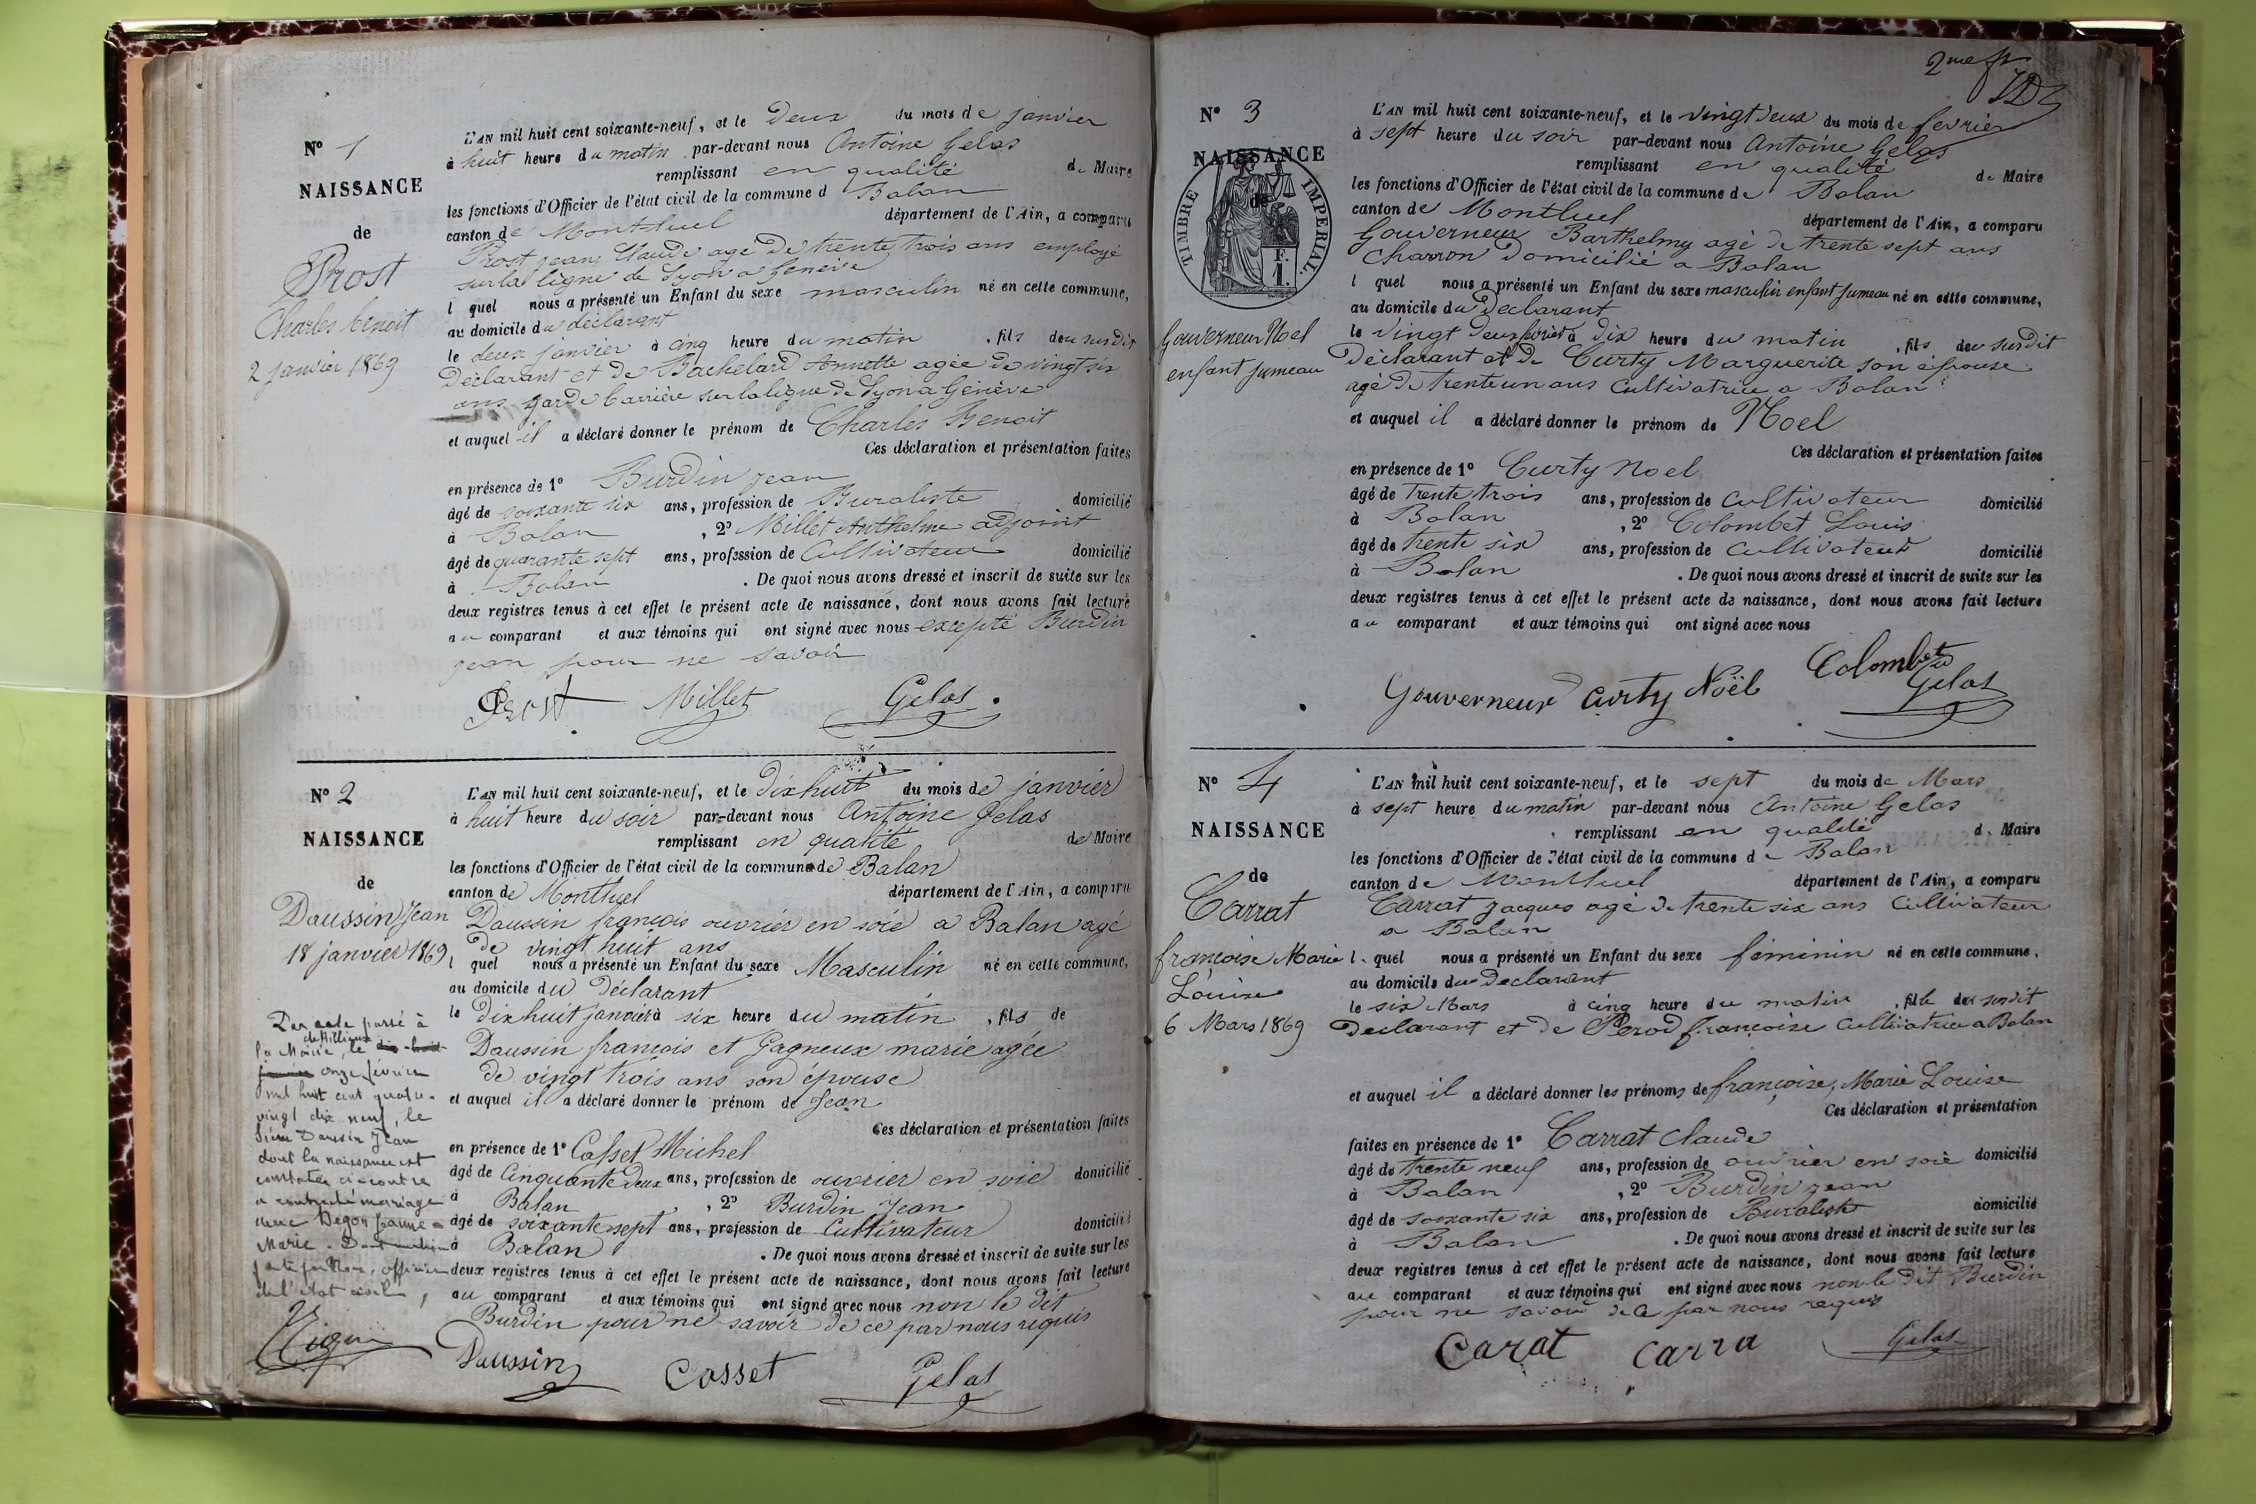 N° 1
NAISSANCE
de
Prost
Charles benoit
2 janvier 1869
L'AN mil huit cent soixante-neuf, et le Deux du mois de janvier
à huit heure du matin par-devant nous Antoine Gelas
remplissant en qualité de Maire
les fonctions d'Officier de l'état civil de la commune d Balan
canton de Montluel département de l'Ain, a comparu
Prost jean Claude agé de trente trois ans employé
sur la ligne de Lyon a Genève
l quel nous a présenté un Enfant du sexe masculin né en cette commune,
au domicile du déclarant
le deux janvier à cinq heure du matin , fils deu susdit
Déclarant et de Bachelard Annette agée de vingt six
ans garde barrière sur la ligne de Lyon a Genève
et auquel il a déclaré donner le prénom de Charles Benoit
Ces déclaration et présentation faites
en présence de 1° Burdin jean
âgé de soixante six ans, profession de Buraliste domicilié
à Balan , 2° Millet Anthelme adjoint
âgé de quarante sept ans, profession de Cultivateur domicilié
à Balan . De quoi nous avons dressé et inscrit de suite sur les
deux registres tenus à cet effet le présent acte de naissance, dont nous avons fait lecture
au comparant et aux témoins qui ont signé avec nous excepté Burdin
jean pour ne savoir
Prost Millet Gelas
N° 2
NAISSANCE
de
Daussin Jean
18 janvier 1869
Par acte passé à
la Mairie, de Millieux le dix-huit
janvier onze février
mil huit cent quatre-
vingt dix neuf, le
Sieur Daussin Jean
dont la naissance est
constatée ci-contre
a contracté mariage
avec Degon Jeanne
Marie.
officier
de l'état civil,
L'AN mil huit cent soixante-neuf, et le Dix huit du mois de janvier
à huit heure du soir par-devant nous Antoine Gelas
remplissant en qualité de Maire
les fonctions d'Officier de l'état civil de la commune de Balan
canton de Montluel département de l'Ain, a comparu
Daussin françois ouvrier en soie a Balan agé
de vingt huit ans
l quel nous a présenté un Enfant du sexe Masculin né en cette commune,
au domicile du Déclarant
le Dix huit janvier à six heure du matin , fils de
Daussin françois et Gagneux marie agée
de vingt trois ans son épouse
et auquel il a déclaré donner le prénom de Jean
Ces déclaration et présentation faites
en présence de 1° Cosset Michel
âgé de Cinquante deux ans, profession de ouvrier en soie domicilié
à Balan , 2° Burdin Jean
âgé de soixante sept ans, profession de Cultivateur domicilié
à Balan . De quoi nous avons dressé et inscrit de suite sur les
deux registres tenus à cet effet le présent acte de naissance, dont nous avons fait lecture
au comparant et aux témoins qui ont signé avec nous non le dit
Burdin pour ne savoir de ce par nous requis
Daussin Cosset Gelas
2me
N° 3
NAISSANCE
de
TIMBRE IMPERIAL.
1 F.
Gouverneur Noel
enfant jumeau
L'AN mil huit cent soixante-neuf, et le vingt deux du mois de fevrier
à sept heure du soir par-devant nous Antoine Gelas
remplissant en qualité de Maire
les fonctions d'Officier de l'état civil de la commune de Balan
canton de Montluel département de l'Ain, a comparu
Gouverneur Barthelmy agé de trente sept ans
Charron Domicilié a Balan
l quel nous a présenté un Enfant du sexe masculin enfant jumeau né en cette commune,
au domicile du Declarant
le vingt deux fevrier à dix heure du matin , fils deu susdit
Déclarant et de Curty Marguerite son épouse
agé de trente un ans Cultivatrice a Balan
et auquel il a déclaré donner le prénom de Noel
Ces déclaration et présentation faites
en présence de 1° Curty Noel
âgé de Trente trois ans, profession de Cultivateur domicilié
à Balan , 2° Colombet Louis
âgé de trente six ans, profession de Cultivateur domicilié
à Balan . De quoi nous avons dressé et inscrit de suite sur les
deux registres tenus à cet effet le présent acte de naissance, dont nous avons fait lecture
au comparant et aux témoins qui ont signé avec nous
Gouverneur Curty Noël Colombet Gelas
N° 4
NAISSANCE
de
Carrat
françoise Marie
Louise
6 Mars 1869
L'AN mil huit cent soixante-neuf, et le sept du mois de Mars
à sept heure du matin par-devant nous Antoine Gelas
remplissant en qualité d. Maire
les fonctions d'Officier de l'état civil de la commune de Balan
canton de Montluel département de l'Ain, a comparu
Carrat jacques agé de trente six ans Cultivateur
a Balan
l quel nous a présenté un Enfant du sexe féminin né en cette commune,
au domicile du Declarant
le six Mars à cinq heure du matin , fille deu susdit
Declarant et de Perod françoise Cultivatrice a Balan
et auquel il a déclaré donner les prénoms de françoise, Marie Louise
Ces déclaration et présentation
faites en présence de 1° Carrat Claude
âgé de trente neuf ans, profession de ouvrier en soie domicilié
à Balan , 2° Burdin jean
âgé de soixante six ans, profession de Buraliste domicilié
à Balan . De quoi nous avons dressé et inscrit de suite sur les
deux registres tenus à cet effet le présent acte de naissance, dont nous avons fait lecture
au comparant et aux témoins qui ont signé avec nous non le dit Burdin
pour ne savoir de ce par nous requis
Carat Carra Gelas